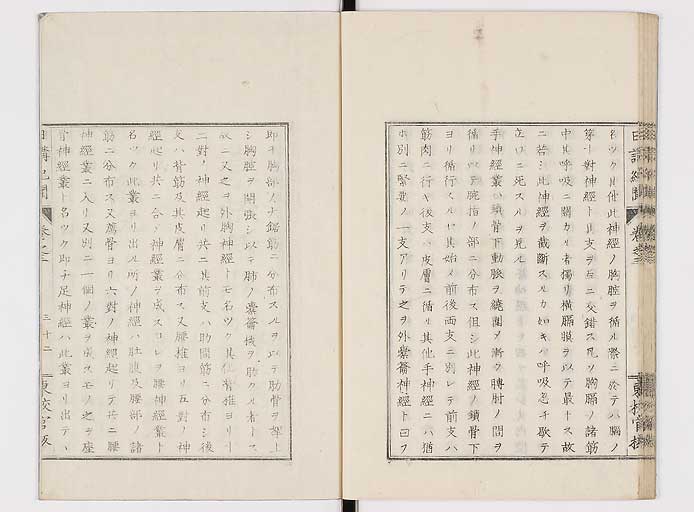 名ツク其他此神經ノ胸腔ヲ循ル際ニ於テハ腦ノ
第十對神經ト其支ヲ互ニ交錯ス凡ソ胸膈ノ諸筋
中其呼吸ニ關カル者獨リ横膈膜ヲ以テ最トス故
ニ若シ此神經ヲ截斷スルカ如キハ呼吸忽チ歇テ
立口ニ死スルヲ見ル
手神經叢ハ鎖骨下動脉ヲ繞圍メ漸ク膊肘ノ間ヲ
循リ以テ腕指ノ部ニ分布ス但シ此神經ノ鎖骨下
ヨリ循行スルヤ其始メ前後両支ニ別レテ前支ハ
筋肉ニ行キ後支ハ皮膚ニ循リ其他手神經ニハ猶
ホ別ニ緊要ノ一支アリテ之ヲ外嚢箭神經ト曰フ
即チ胸部ノ大鋸筋ニ分布スルヲ以テ肋骨ヲ挙上
シ胸腔ヲ開張シ以テ肺ノ嚢籥機ヲ助クル者トス
故ニ又之ヲ外胸神經トモ名ツク其他脊椎ヨリ十
二對ノ神經起リ共ニ其前支ハ肋間筋ニ分布シ後
支ハ背筋及其皮膚ニ分布ス又腰椎ヨリ五對ノ神
經起リ共ニ合シ神經叢ヲ成スコレヲ腰神經叢ト
名ツク此叢ヨリ出ル所ノ神經ハ肚腹及腰部ノ諸
筋ニ分布ス又薦骨ヨリ六對ノ神經起リテ共ニ腰
神經叢ニ入リ又別ニ一個ノ叢ヲ成スモノ之ヲ座
骨神經叢ト名ツク即チ足神經ハ此叢ヨリ出テ、
日講紀聞
卷之二
三十二